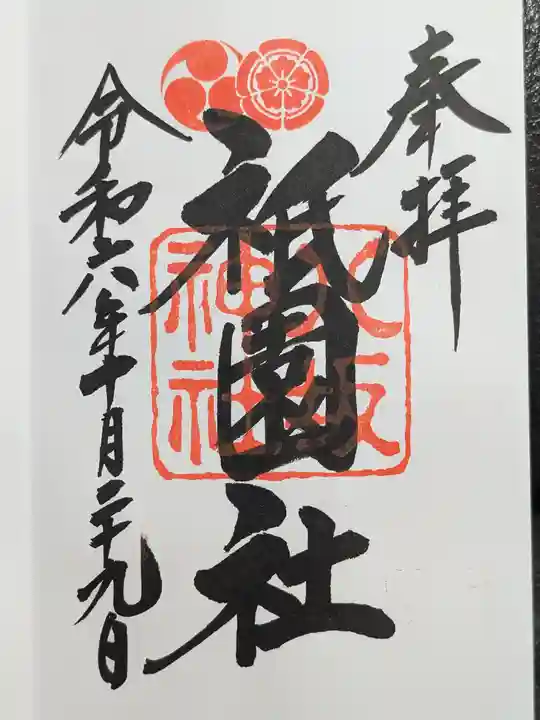 奉拝
祇園社
神社
令和六年十月二十九日